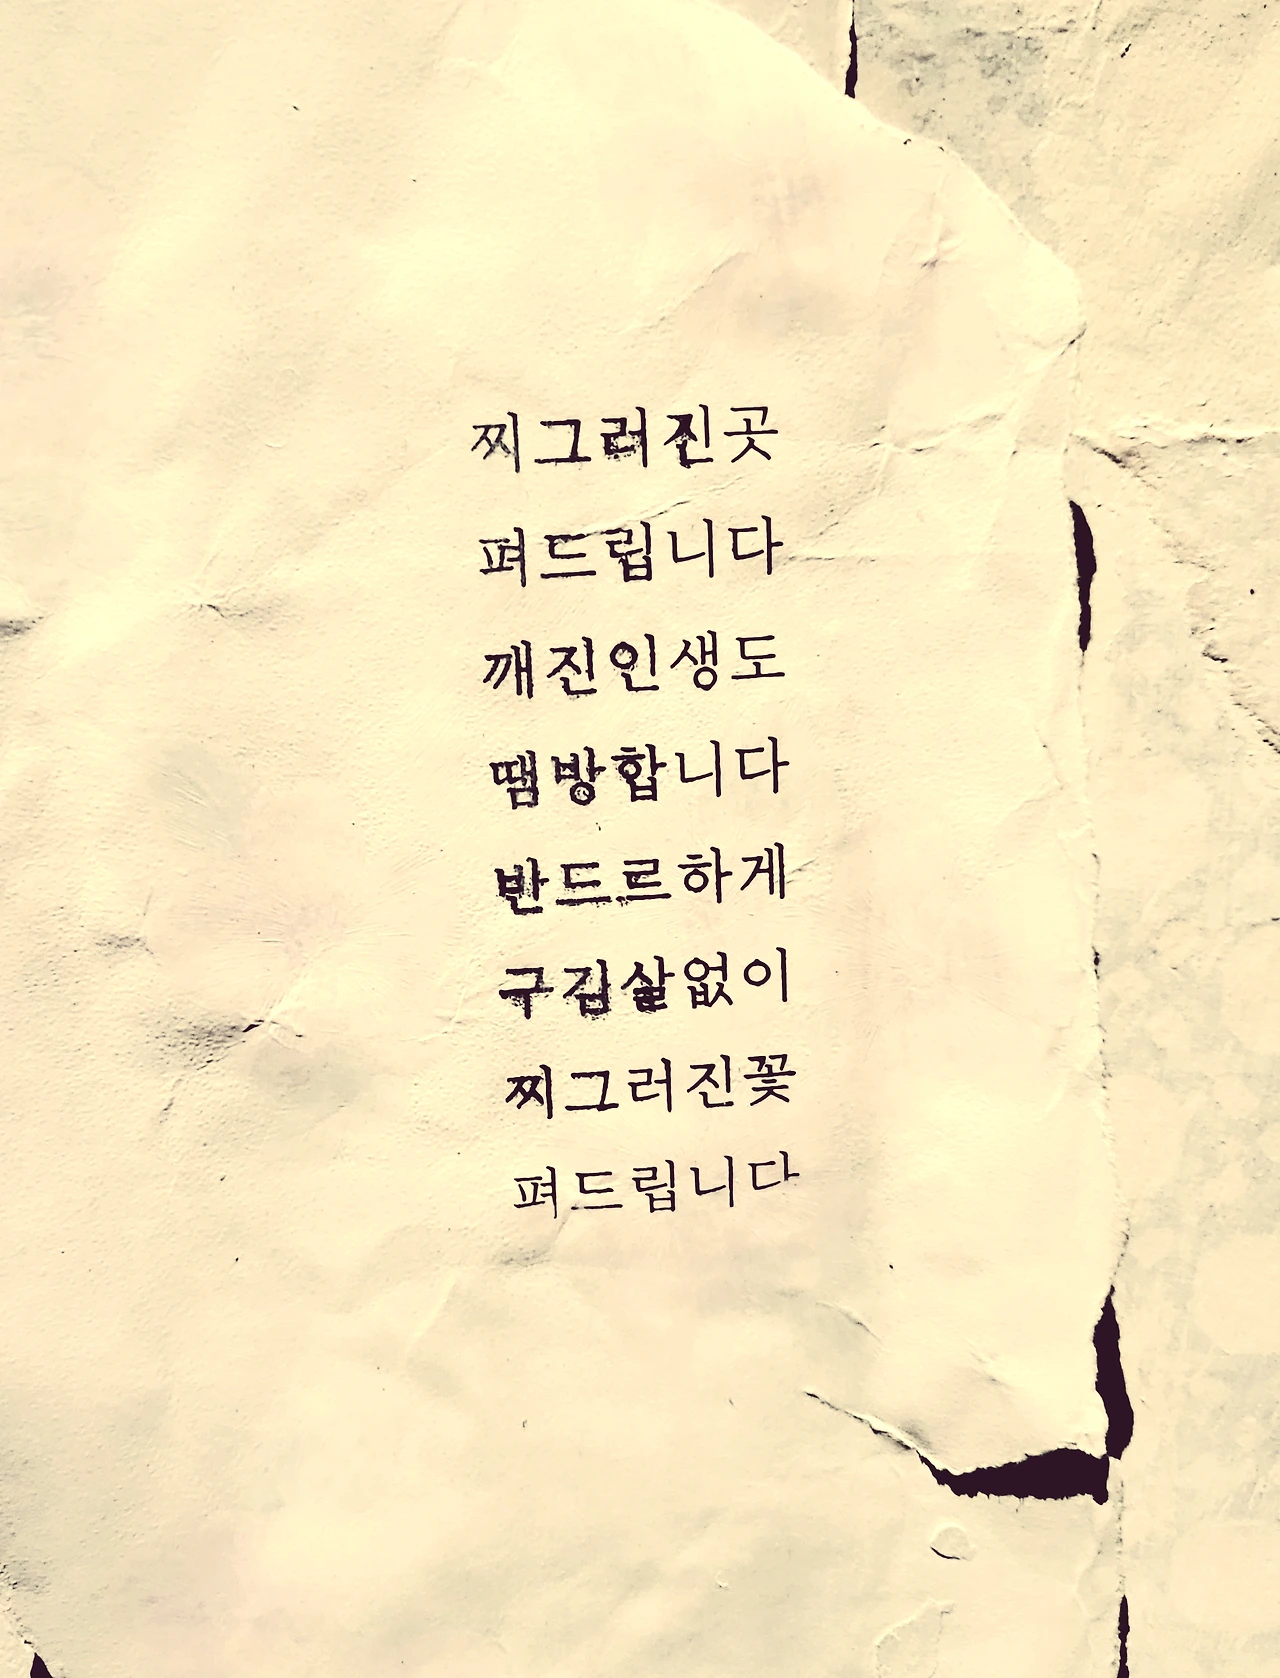 찌그러진곳
펴드립니다
깨진인생도
땜방합니다
반드르하게
구김살없이
찌그러진꽃
펴드립니다